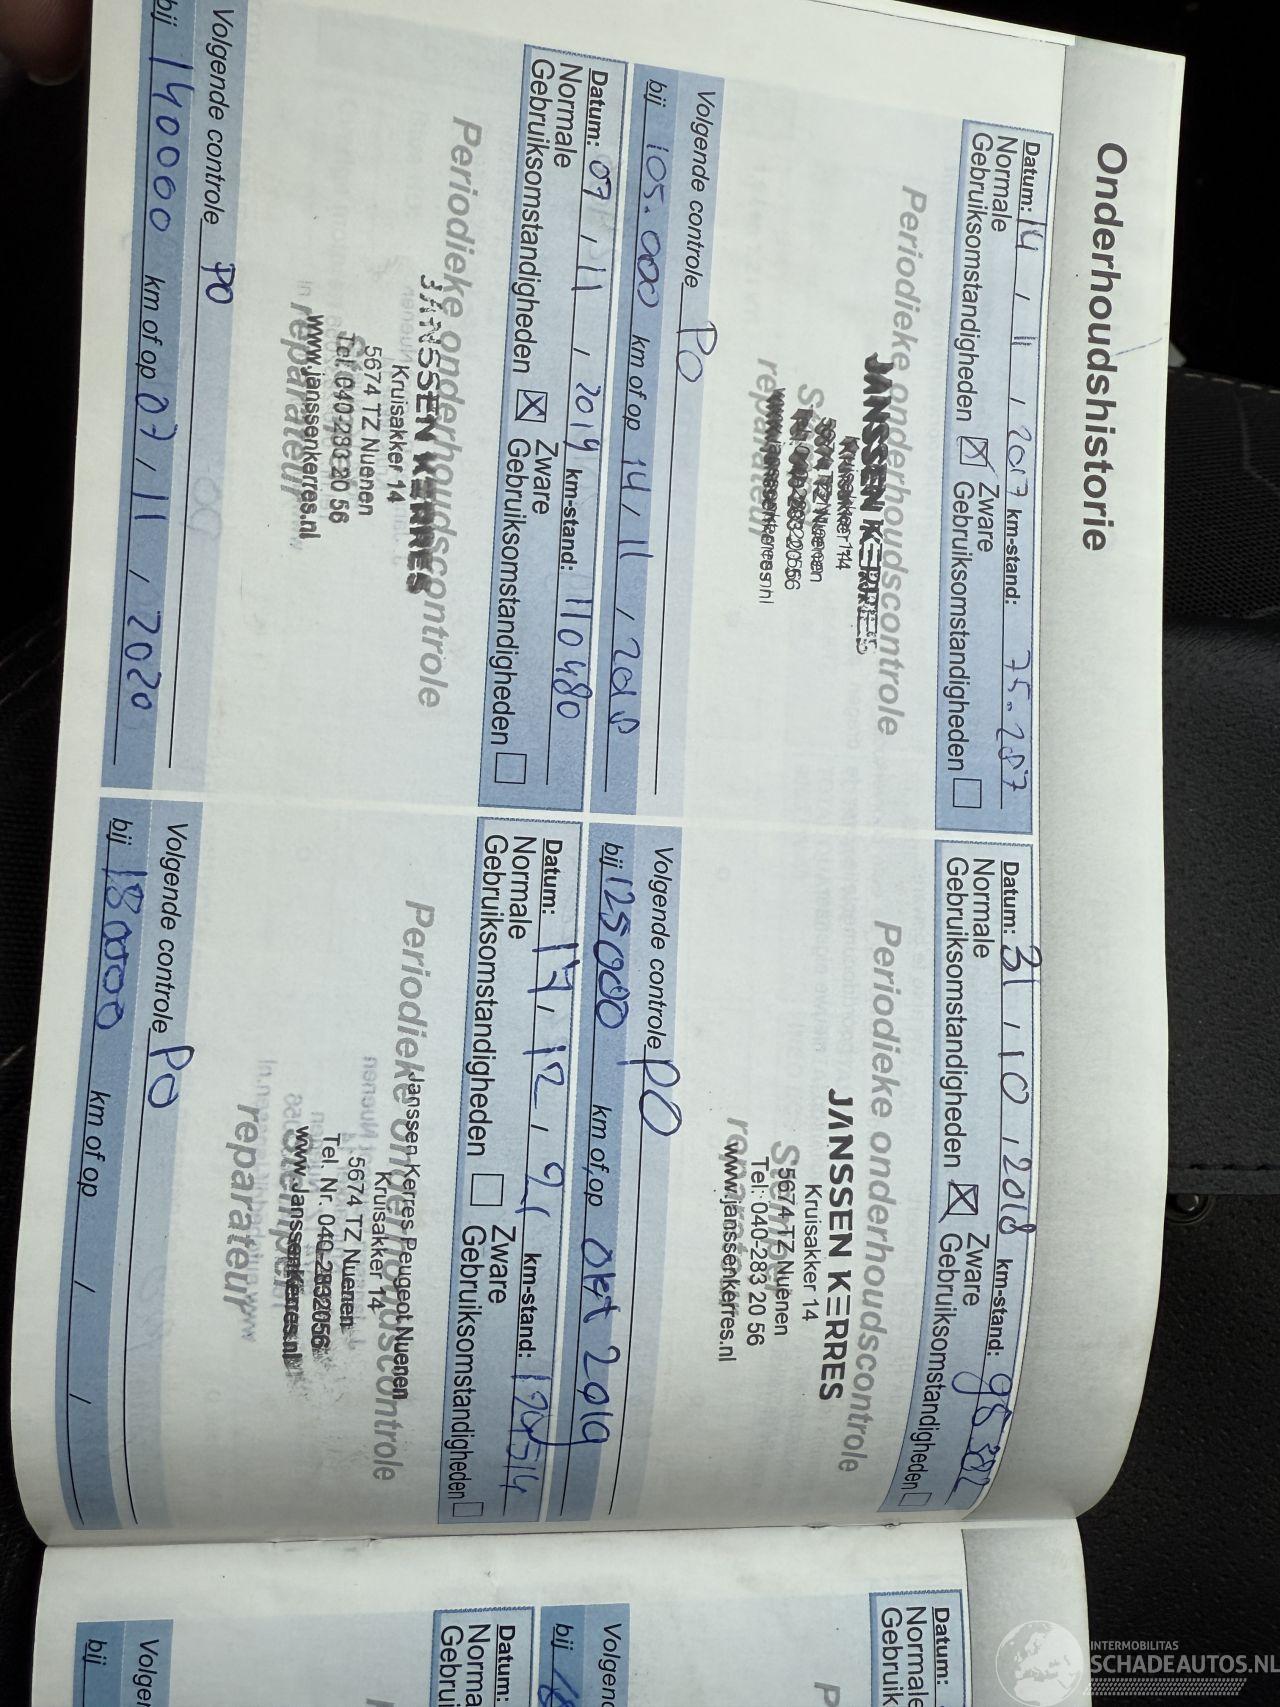 Onderhoudshistorie
Datum: 14 / 11 / 2017 km-stand: 75.287
Normale
Gebruiksomstandigheden ☒ Zware
Gebruiksomstandigheden ☐
Periodieke onderhoudscontrole
JANSSEN KERRES
Kruisakker 14
5674 TZ Nuenen
Tel: 040-283 20 56
reparateur
www.janssenkerres.nl
Volgende controle PO
bij 105.000 km of op 14 / 11 / 2018
Datum: 31 / 10 / 2018 km-stand:
Normale
Gebruiksomstandigheden ☒ Zware
Gebruiksomstandigheden ☐
Periodieke onderhoudscontrole
JANSSEN KERRES
Kruisakker 14
5674 TZ Nuenen
Tel: 040-283 20 56
www.janssenkerres.nl
Volgende controle PO
bij 125000 km of op okt 2019
Datum: 07 / 11 / 2019 km-stand: 110480
Normale
Gebruiksomstandigheden ☒ Zware
Gebruiksomstandigheden ☐
Periodieke onderhoudscontrole
JANSSEN KERRES
Kruisakker 14
5674 TZ Nuenen
Tel: 040-283 20 56
reparateur
www.janssenkerres.nl
Volgende controle PO
bij 140000 km of op 07 / 11 / 2020
Datum: 17 / 12 / 21 km-stand:
Normale
Gebruiksomstandigheden ☐ Zware
Gebruiksomstandigheden ☐
Periodieke onderhoudscontrole
Janssen Kerres Peugeot Nuenen
Kruisakker 14
5674 TZ Nuenen
Tel. Nr. 040-2832056
www.Janssenkerres.nl
reparateur
Volgende controle PO
bij 180000 km of op / /
Datum:
Normale
Datum:
bij
INTERMOBILITAS
SCHADEAUTOS.NL